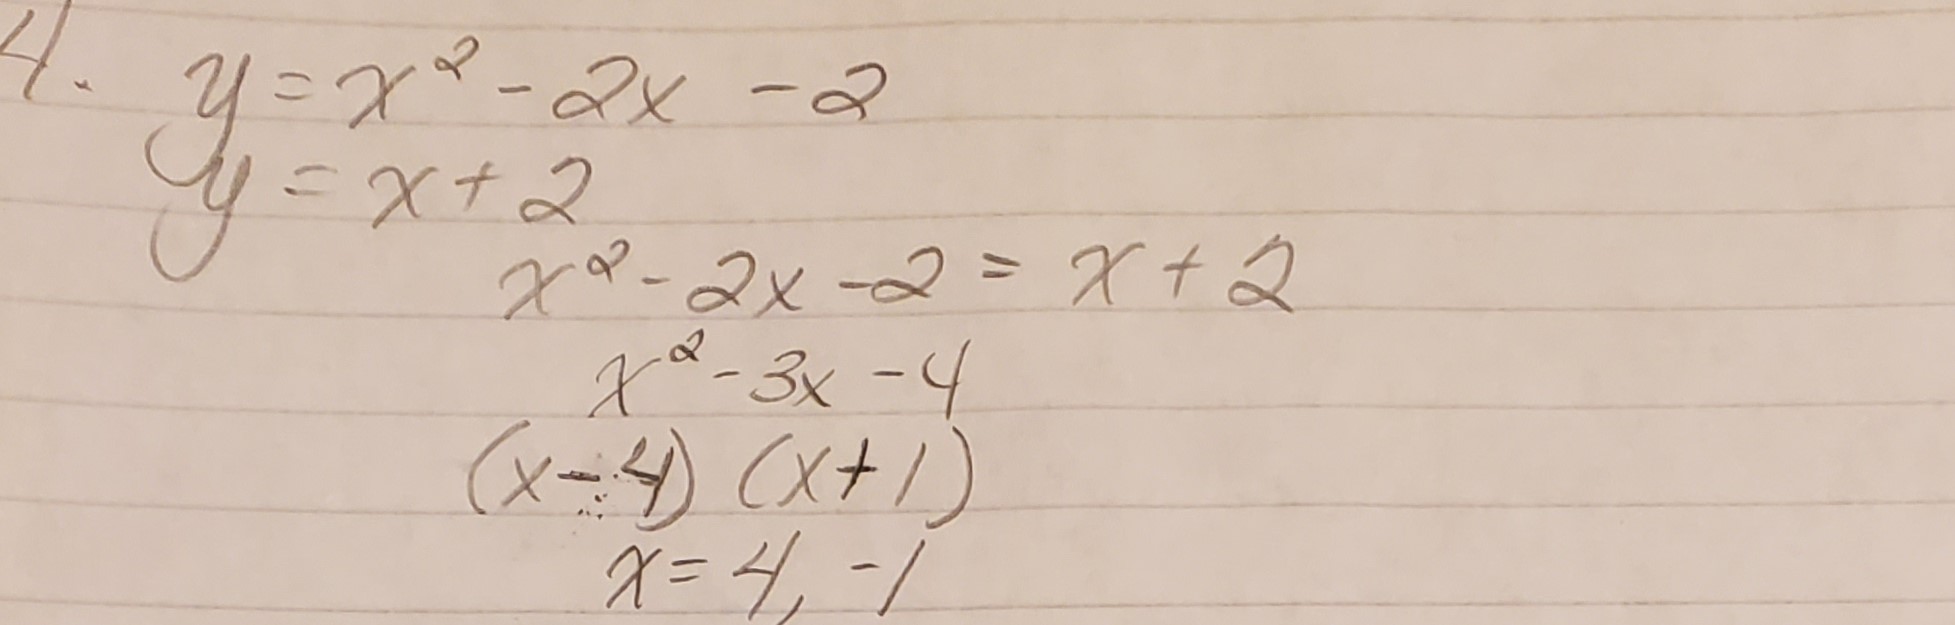 4. y = x² - 2x - 2
y = x + 2
x² - 2x - 2 = x + 2
x² - 3x - 4
(x - 4) (x + 1)
x = 4, -1